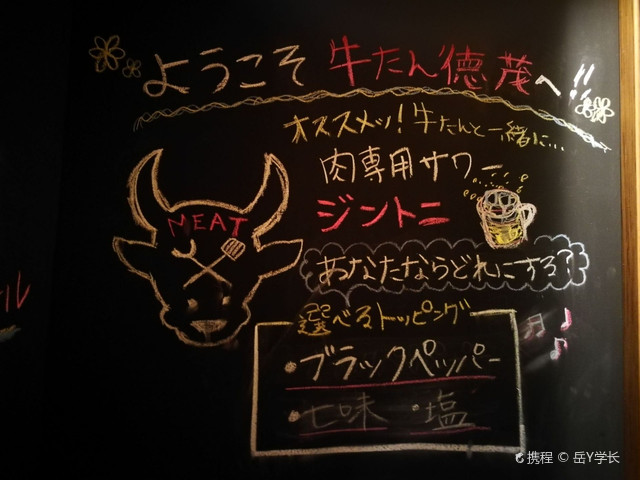 ようこそ 牛たん徳茂へ!!
オススメッ!牛たんと一緒に...
肉専用サワー
MEAT
ジントニ
あなたならどれにする?
選べるトッピング
・ブラックペッパー
・七味 ・塩
ル
携程 © 岳Y学长